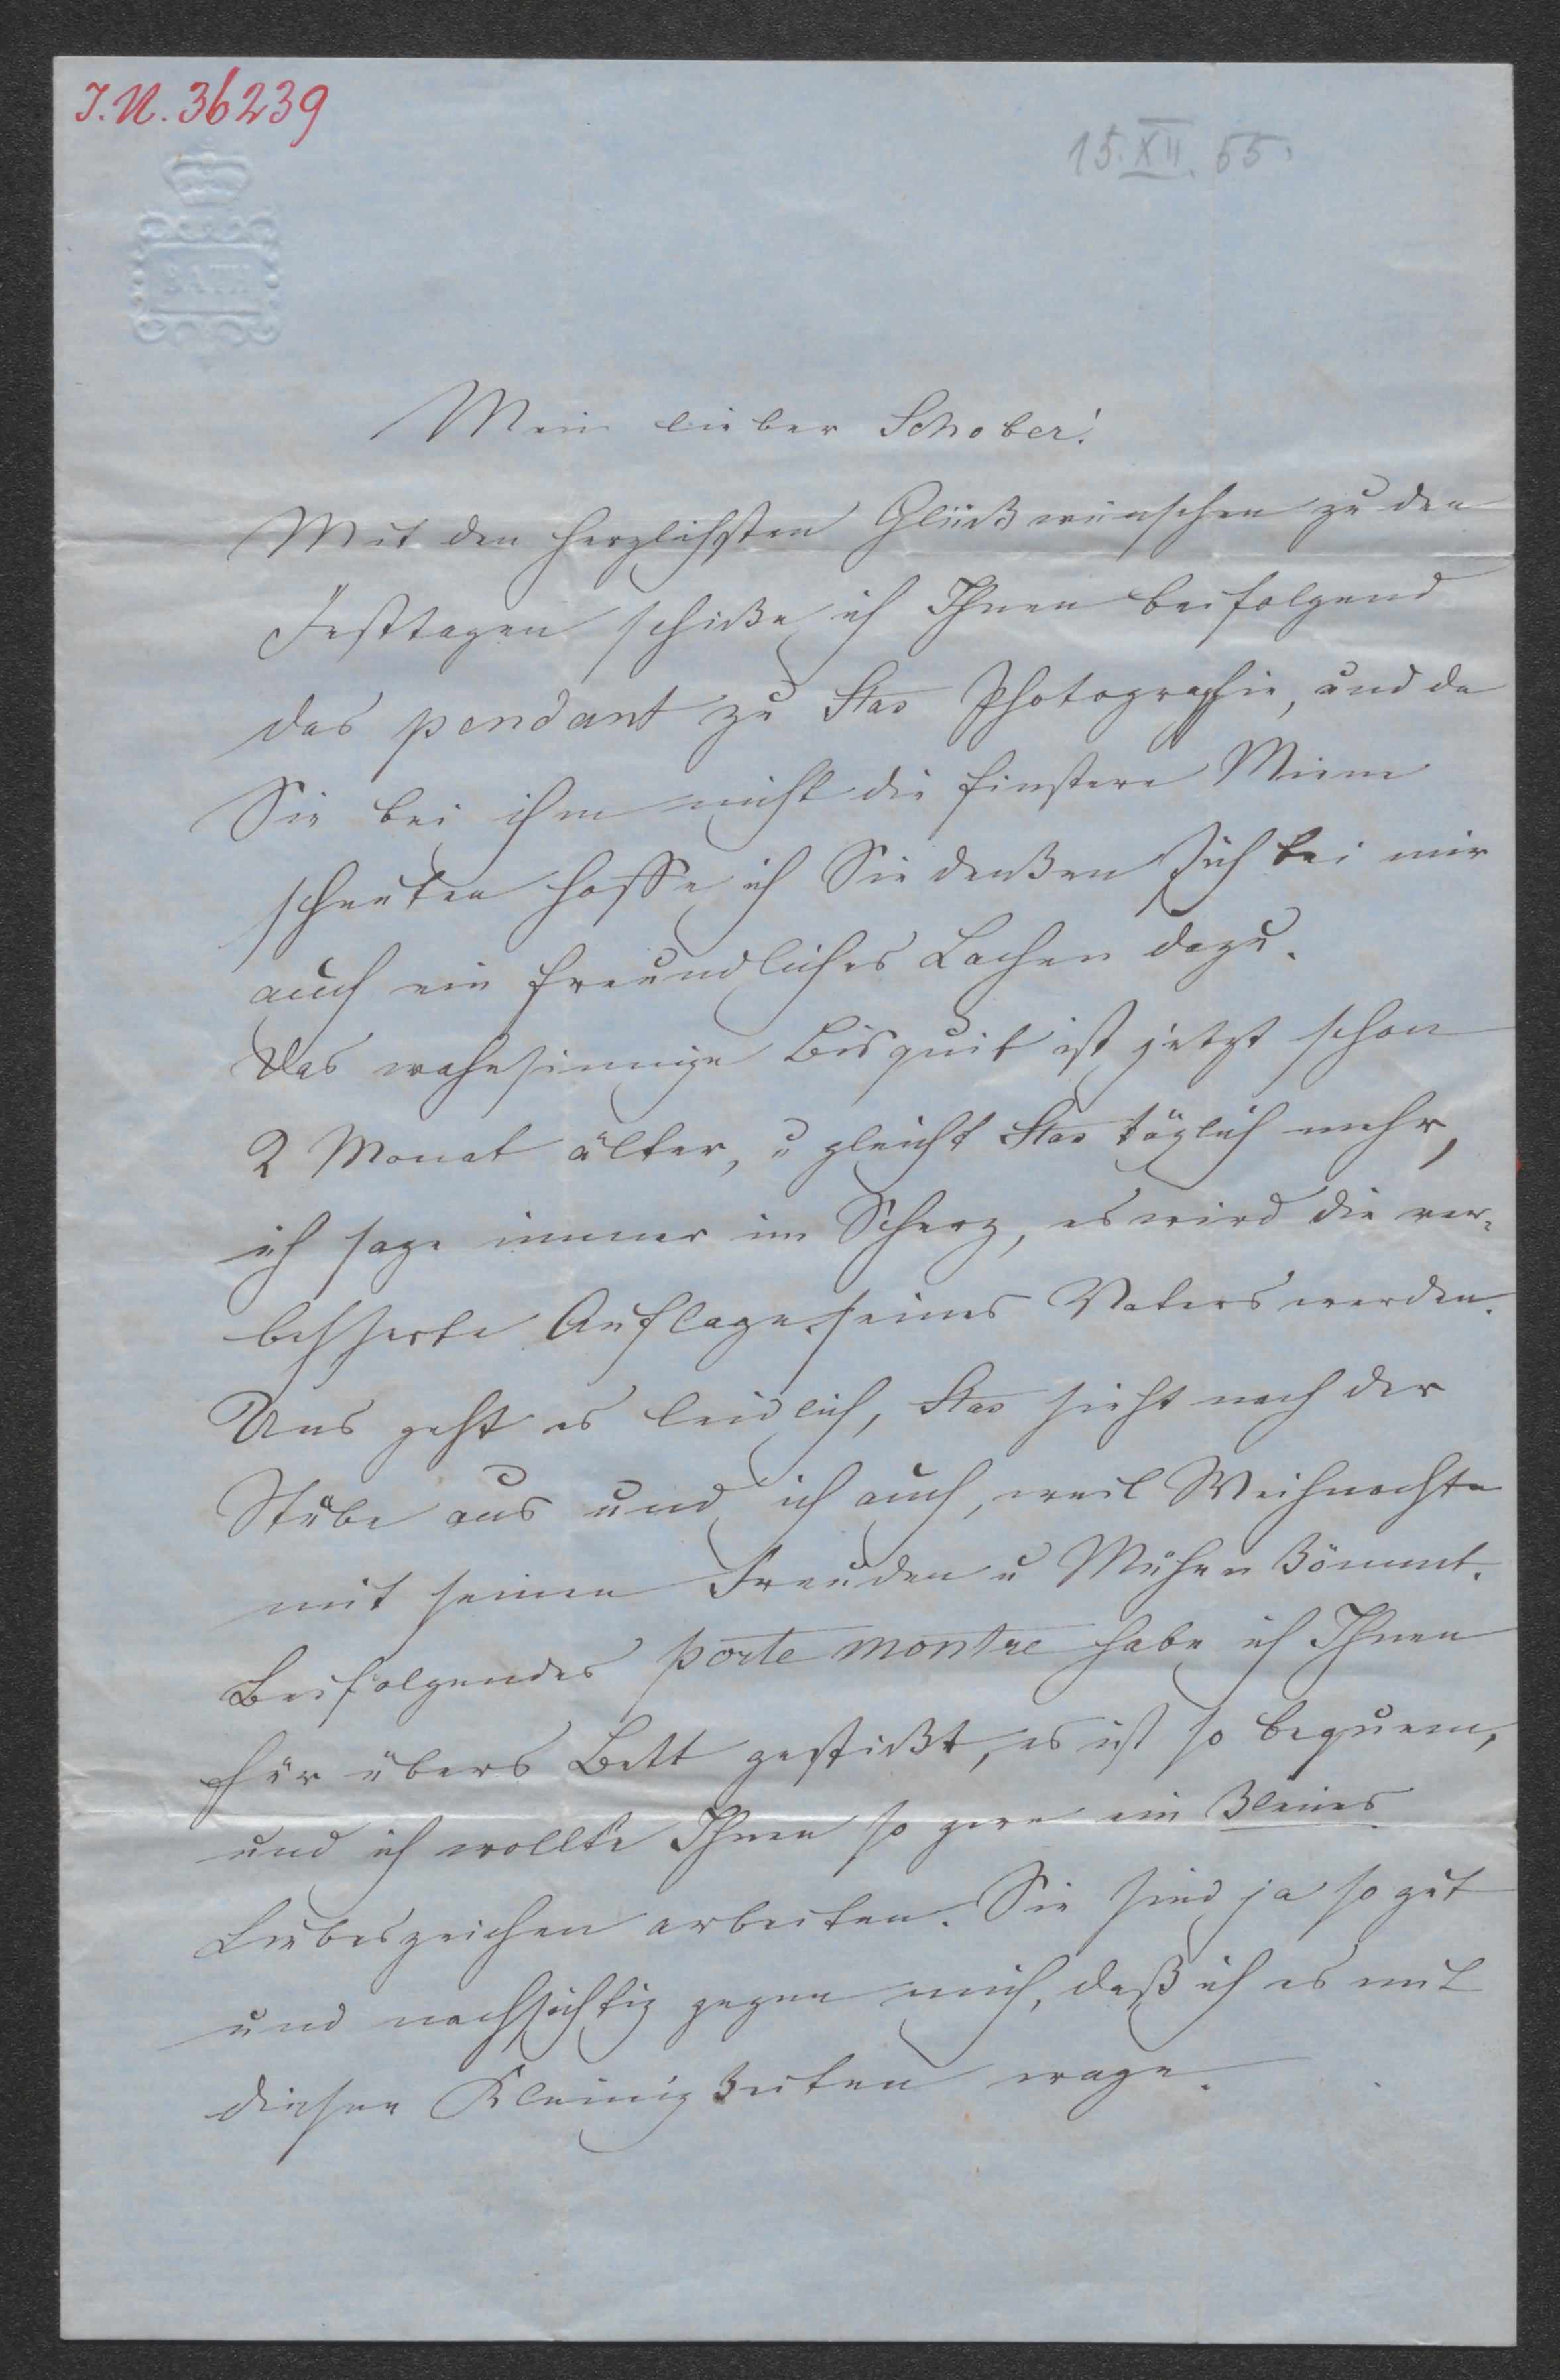 J.N. 36239
15.XII.55.
BATH
Mein lieber Schober!
Mit den herzlichsten Glückwünschen zu den
Festtagen schicke ich Ihnen beifolgend
das pendant zu Stas Photographie, und da
Sie bei ihm nicht die finstere Miene
scheuten hoffe ich Sie denken sich bei mir
auch ein freundliches Lachen dazu.
Das wahnsinnige Bisquit ist jetzt schon
2 Monat älter, u gleicht Stas täglich mehr,
ich sage immer im Scherz, es wird die ver-
besserte Auflage seines Vaters werden.
Uns geht es leidlich, Stas sieht nach der
Stube aus und ich auch, weil Weihnachten
mit seinen Freuden u Mühen kömmt.
Beifolgendes porte montre habe ich Ihnen
für übers Bett gestickt, es ist so bequem,
und ich wollte Ihnen so gern ein kleines
Liebeszeichen arbeiten. Sie sind ja so gut
und nachsichtig gegen mich, daß ich es mit
diesen Kleinigkeiten wage.